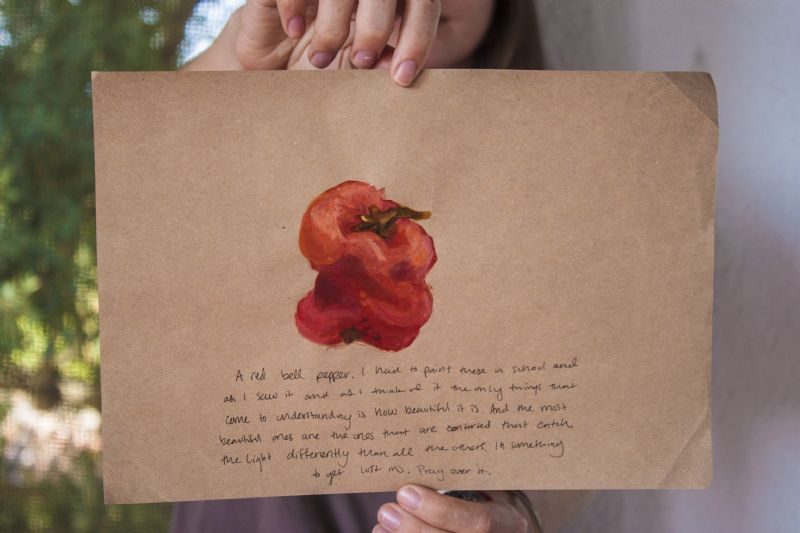 A red bell pepper. I had to paint these in school and
as I saw it and as I think of it the only things that
come to understanding is how beautiful it is. And the most
beautiful ones are the ones that are contorsed that catch
the light differently than all the others. Its something
to get lost in. Pray over it.